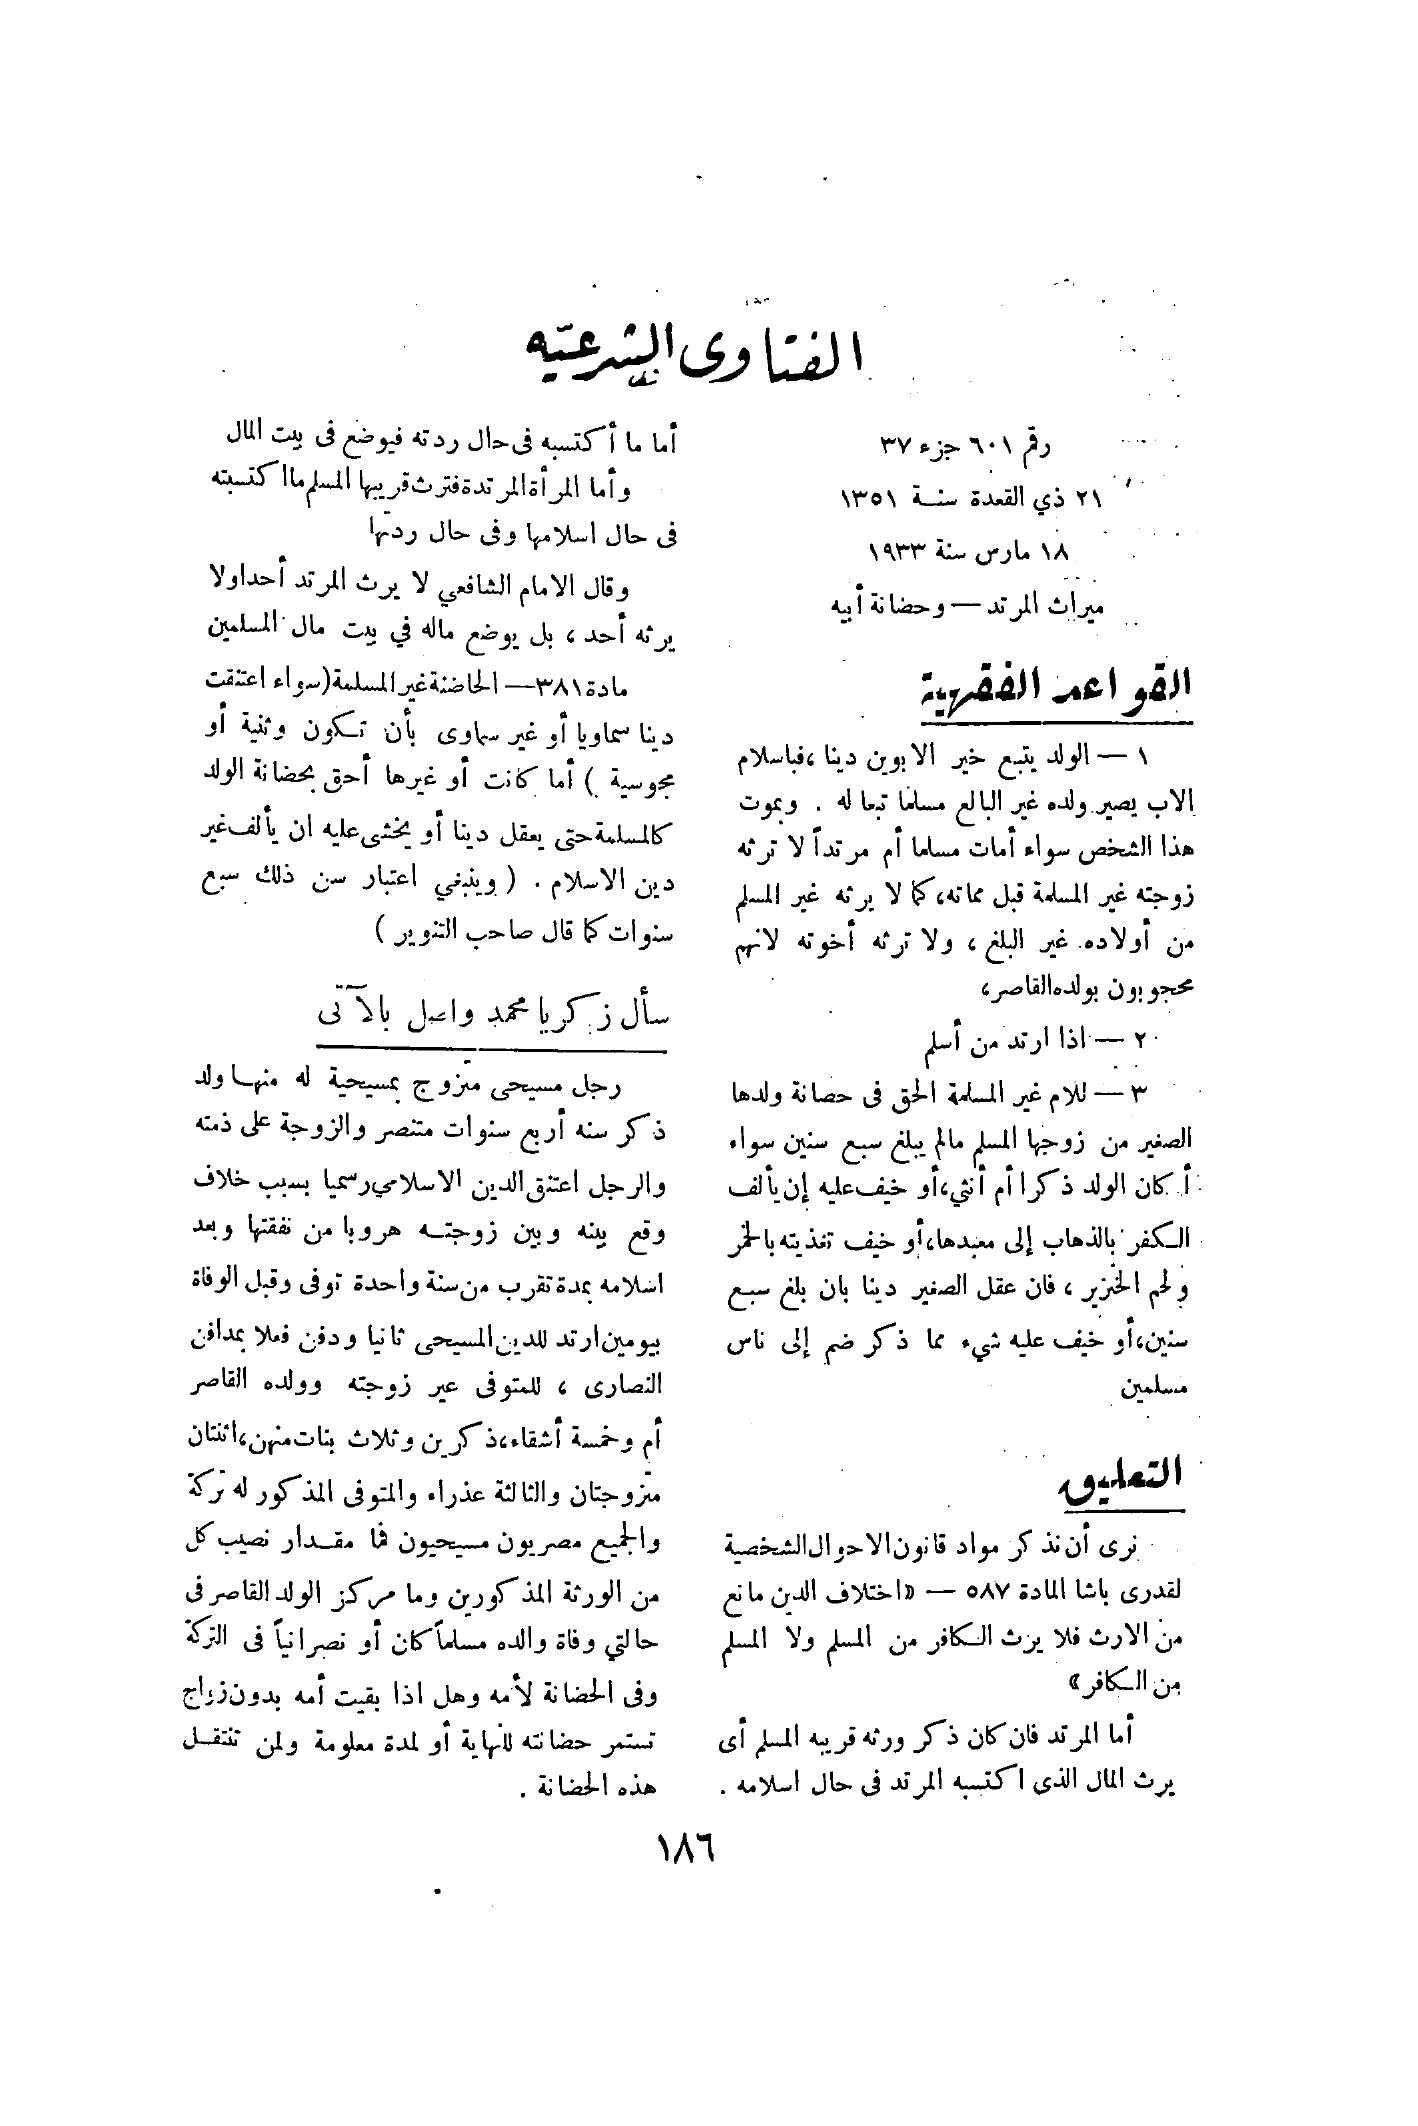 الفتاوى الشرعيّه
رقم ٦٠١ جزء ٣٧
٢١ ذي القعدة سنة ١٣٥١
١٨ مارس سنة ١٩٣٣
ميراث المرتد — وحضانة أبيه
القواعد الفقهية
١ — الولد يتبع خير الابوين دينا ، فباسلام
الاب يصير ولده غير البالغ مسلما تبعا له . وبموت
هذا الشخص سواء أمات مسلما أم مرتداً لا ترثه
زوجته غير المسلمة قبل مماته، كما لا يرثه غير المسلم
من أولاده غير البلغ ، ولا ترثه أخوته لانهم
محجوبون بولده القاصر،
٢ — اذا ارتد من أسلم
٣ — للام غير المسلمة الحق فى حضانة ولدها
الصغير من زوجها المسلم مالم يبلغ سبع سنين سواء
أكان الولد ذكرا أم أنثي، أو خيف عليه إن يألف
الكفر بالذهاب إلى معبدها، أو خيف تغذيته بالخمر
ولحم الخنزير ، فان عقل الصغير دينا بان بلغ سبع
سنين، أو خيف عليه شيء مما ذكر ضم إلى ناس
مسلمين
التعليق
نرى أن نذكر مواد قانون الاحوال الشخصية
لقدرى باشا المادة ٥٨٧ — «اختلاف الدين مانع
من الارث فلا يرث الكافر من المسلم ولا المسلم
من الكافر»
أما المرتد فان كان ذكر ورثه قريبه المسلم أى
يرث المال الذى اكتسبه المرتد فى حال اسلامه .
أما ما أكتسبه فى حال ردته فيوضع فى بيت المال
وأما المرأة المرتدة فترث قريبها المسلم ما اكتسبته
فى حال اسلامها وفى حال ردتها
وقال الامام الشافعي لا يرث المرتد أحدا ولا
يرثه أحد ، بل يوضع ماله في بيت مال المسلمين
مادة ٣٨١ — الحاضنة غير المسلمة (سواء اعتنقت
دينا سماويا أو غير سماوى بأن تكون وثنية أو
مجوسية ) أما كانت أو غيرها أحق بحضانة الولد
كالمسلمة حتى يعقل دينا أو يخشى عليه ان يألف غير
دين الاسلام . ( وينبغي اعتبار سن ذلك سبع
سنوات كما قال صاحب التنوير )
سأل زكريا محمد واصل بالآتى
رجل مسيحى متزوج بمسيحية له منها ولد
ذكر سنه أربع سنوات متنصر والزوجة على ذمته
والرجل اعتنق الدين الاسلامي رسميا بسبب خلاف
وقع بينه وبين زوجته هروبا من نفقتها وبعد
اسلامه بمدة تقرب من سنة واحدة توفى وقبل الوفاة
بيومين ارتد للدين المسيحى ثانيا ودفن فعلا بمدافن
النصارى ، للمتوفى عير زوجته وولده القاصر
أم وخمسة أشقاء، ذكرين وثلاث بنات منهن، اثنتان
متزوجتان والثالثة عذراء والمتوفى المذكور له تركة
والجميع مصريون مسيحيون فما مقدار نصيب كل
من الورثة المذكورين وما مركز الولد القاصر فى
حالتي وفاة والده مسلماً كان أو نصرانياً فى التركة
وفى الحضانة لأمه وهل اذا بقيت أمه بدون زواج
تستمر حضانته للنهاية أو لمدة معلومة ولمن تنتقل
هذه الحضانة .
١٨٦